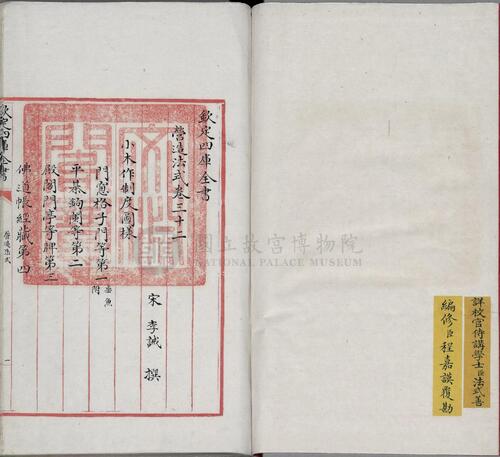 詳校官侍講學士臣法式善
編修臣程嘉謨覆勘
欽定四庫全書
營造法式卷三十二
宋 李誡 撰
小木作制度圖樣
門窗格子門等第一垂魚附
平棊鉤闌等第二
殿閣門亭等牌第三
佛道帳經藏第四
欽定四庫全書
營造法式
一
國立故宮博物院
NATIONAL PALACE MUSEUM
文淵閣寶